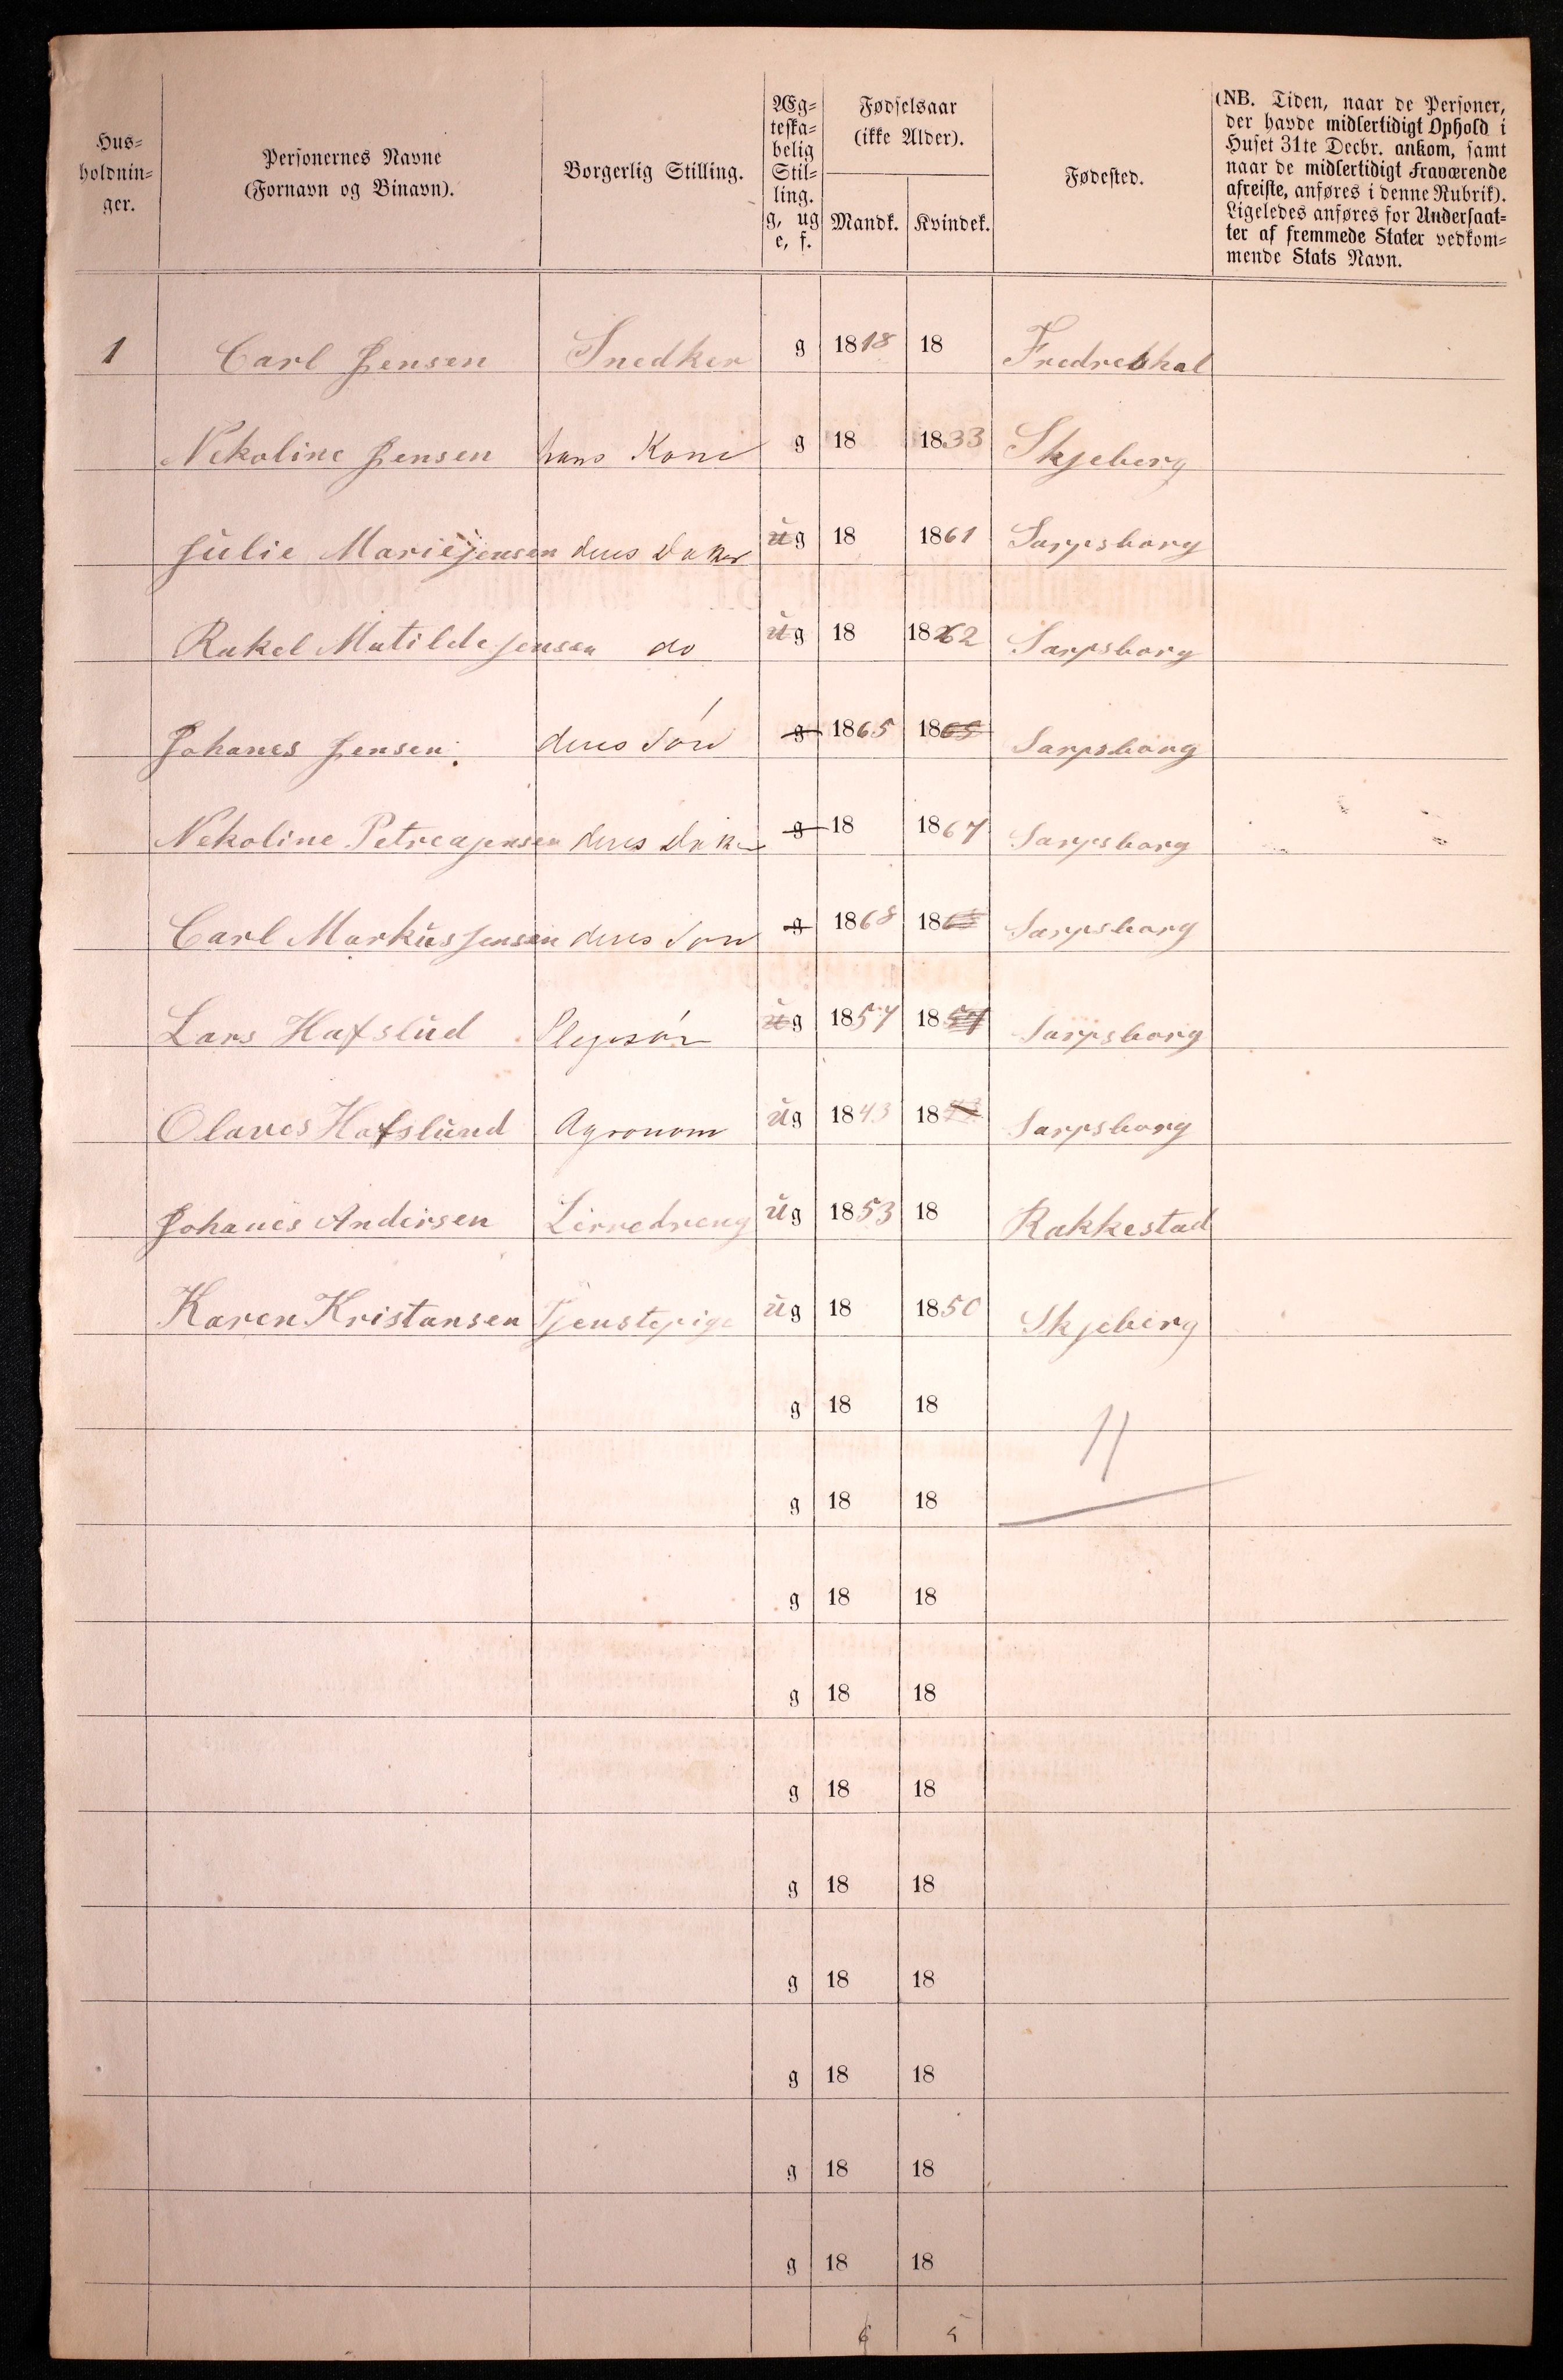 Hus-
holdnin-
ger.
Personernes Navne
(Fornavn og Binavn).
Borgerlig Stilling.
Æg-
teska-
belig
Stil-
ling.
g, ug
e, f.
Fødselsaar
(ikke Alder).
Mandk. Kvindek.
Fødested.
(NB. Tiden, naar de Personer,
der havde midlertidigt Ophold i
Huset 31te Decbr. ankom, samt
naar de midlertidigt Fraværende
afreiste, anføres i denne Rubrik).
Ligeledes anføres for Undersaat-
ter af fremmede Stater vedkom-
mende Stats Navn.
1 Carl Jensen Snedker g 1818 18 Fredrekhal
Nekoline Jensen hans Kone g 18 1833 Skjeberg
Julie Marie Jensen deres Datter ug 18 1861 Sarpsborg
Rakel Matilde Jensen do ug 18 1862 Sarpsborg
Johanes Jensen deres Søn g 1865 1865 Sarpsborg
Nekoline Petrea Jensen deres Datter g 18 1867 Sarpsborg
Carl Markus Jensen deres Søn g 1868 1868 Sarpsborg
Lars Hafslud Plejesøn ug 1857 1857 Sarpsborg
Olaves Hafslund Agronom ug 1843 1843 Sarpsborg
Johanes Andersen Lerredreng ug 1853 18 Rakkestad
Karen Kristansen Tjenstepige ug 18 1850 Skjeberg
g 18 18
11
g 18 18
g 18 18
g 18 18
g 18 18
g 18 18
g 18 18
g 18 18
g 18 18
g 18 18
6 5